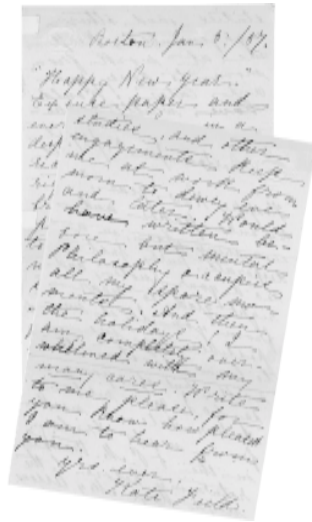 Boston. Jan. 5./57.
"Happy New-Year."
Excuse paper and
studies, and other in a
engagements keep
me at work from
morn to dewy eve
and later. Would
have written be-
fore but mental
Philosophy occupies
all my spare mo-
ments. And then
the holidays! I
am completely over-
whelmed with my
many cares. Write
to me please, for
you know how pleased
I am to hear from
you.
Yrs. ever.
Kate Field.